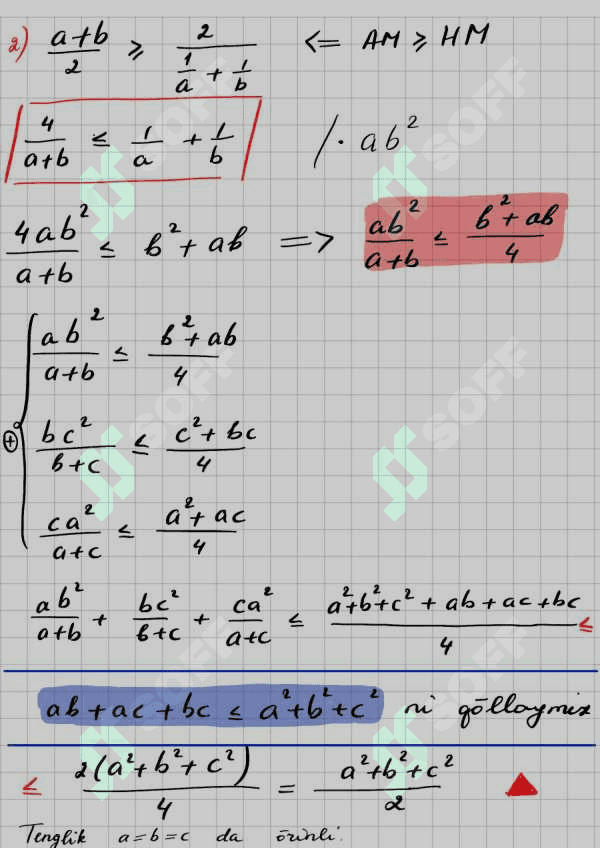 2) (a+b)/2 ≥ 2/(1/a + 1/b) <= AM ≥ HM
4/(a+b) ≤ 1/a + 1/b /· ab²
4ab²/(a+b) ≤ b² + ab => ab²/(a+b) ≤ (b² + ab)/4
ab²/(a+b) ≤ (b² + ab)/4
⊕ bc²/(b+c) ≤ (c² + bc)/4
ca²/(a+c) ≤ (a² + ac)/4
ab²/(a+b) + bc²/(b+c) + ca²/(a+c) ≤ (a²+b²+c² + ab + ac + bc)/4 ≤
ab + ac + bc ≤ a² + b² + c² ni qõllaymiz
≤ 2(a² + b² + c²)/4 = (a² + b² + c²)/2 ▲
Tenglik a=b=c da õrinli.
SOFF
SOFF
SOFF
SOFF
SOFF
SOFF